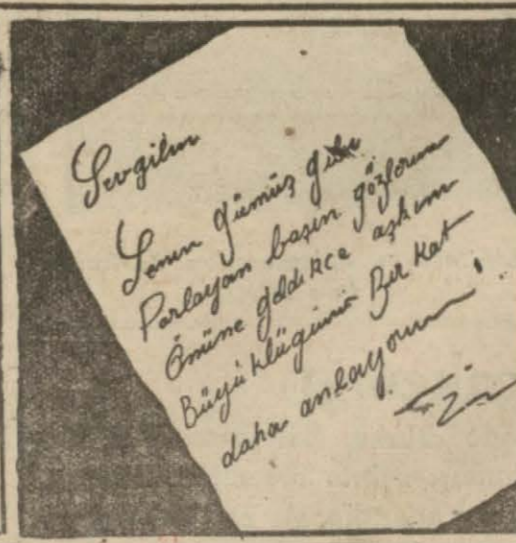 Sevgilim
Senin gümüş gibi
Parlayan başın gözlerim
Önüne geldikce aşkım
Büyüklüğünü Bir kat
daha anlayorum!